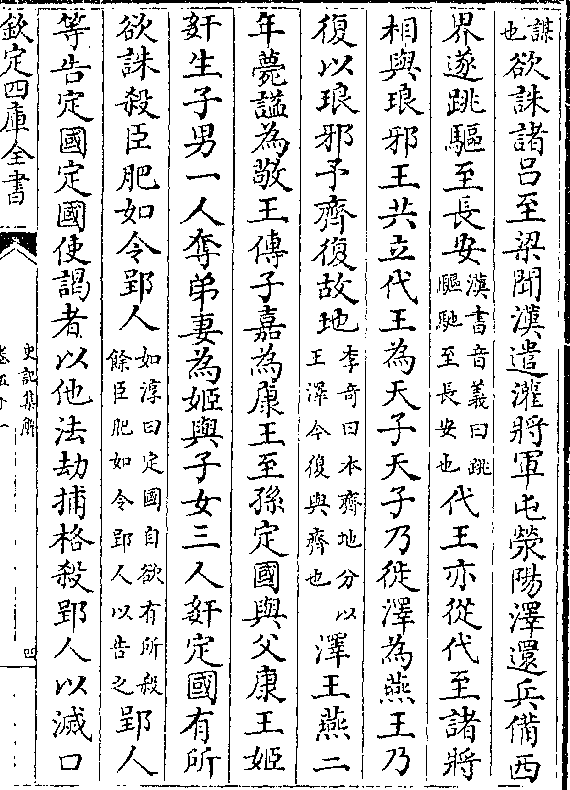 謀也欲誅諸呂至梁聞漢遣灌將軍屯滎陽澤還兵備西
界遂跳驅至長安漢書音義曰跳驅馳至長安也代王亦從代至諸將
相與琅邪王共立代王為天子天子乃徙澤為燕王乃
復以琅邪予齊復故地李奇曰本齊地分以王澤今復與齊也澤王燕二
年薨諡為敬王傳子嘉為康王至孫定國與父康王姬
姧生子男一人奪弟妻為姬與子女三人姧定國有所
欲誅殺臣肥如令郢人如淳曰定國自欲有所殺餘臣肥如令郢人以告之郢人
等告定國定國使謁者以他法劾捕格殺郢人以滅口
欽定四庫全書
史記集解
卷五十一
四